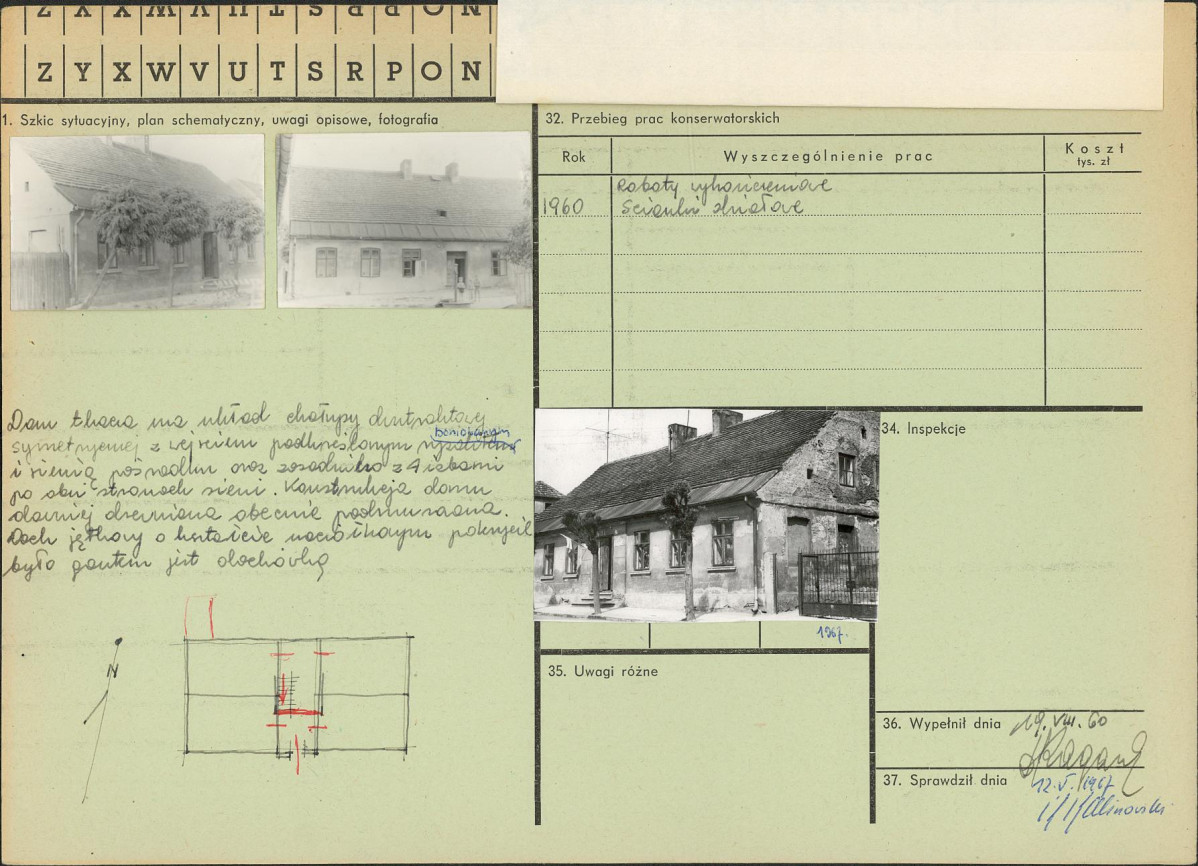 Z Y X W V U T S R P O N
Z Y X W V U T S R P O N
1. Szkic sytuacyjny, plan schematyczny, uwagi opisowe, fotografia
Dom tkacza ma układ chałupy dwutraktowej
symetrycznej z wejściem podkreślonym
i sienią pośrodku oraz zasadniczo z 4 izbami
po obu stronach sieni. Konstrukcja domu
dawniej drewniana obecnie podmurowana.
Dach jętkowy o kształcie naczółkowym pokrycie
było gontem jest dachówką
N
32. Przebieg prac konserwatorskich
Rok
Wyszczególnienie prac
Koszt
tys. zł
Roboty wykończeniowe
1960 Ścianki działowe
34. Inspekcje
1967.
35. Uwagi różne
36. Wypełnił dnia 19.VIII.60
37. Sprawdził dnia 12.V.1967